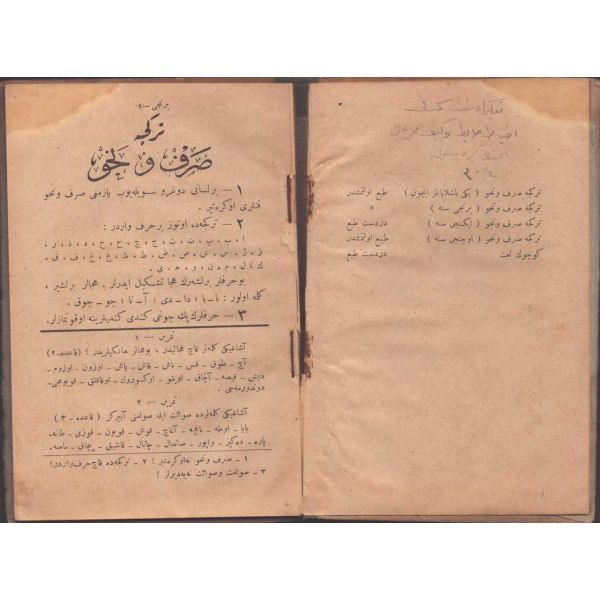 برنجی سنه
ترکجه
صرف و نحو
١ — برلسانی دوغرو سویله‌یوب یازمغی صرف ونحو
فنلری اوکره‌تیر .
٢ — ترکجه‌ده اوتوز برحرف واردر :
ا ، ب ، پ ، ت ، ث ، ج ، چ ، ح ، خ ، د ، ذ ، ر ،
ز ، ژ ، س ، ش ، ص ، ض ، ط ، ظ ، ع ، غ ، ف ، ق ،
ك ، ل ، م ، ن ، و ، ه ، ی .
بوحرفلر برلشه‌رك هجا تشکیل ایدرلر . هجالر برلشیر ،
کله اولور : با ـ با ؛ دا ـ دی ؛ آ ـ نا ؛ چو ـ جوق .
٣ — حرفلرك پك چوغی کندی کندیلرینه اوقونمازلر .
تمرین — ١
آشاغیکی کله‌لر قاچ هجالیدر ، بوهجالر هانکیلریدر ؟ (قاعده ـ ٢)
آچ ـ طوق ـ فس ـ باش ـ قاش ـ یاش ـ اوزون ـ اوزوم ـ
دیش ـ قیصه ـ آلچاق ـ اویقو ـ اوکسوروك ـ اوفاقلق ـ قویومجی ـ
دوندورمه‌جی .
تمرین — ٢
آشاغیکی کله‌لرده صوائت ایله صوامتی آییرکز ( قاعده ـ ٣ )
بابا ـ اوطه ـ باغچه ـ آغاج ـ قوش ـ قویون ـ قوزی ـ طانه ـ
پاره ـ ده‌کیز ـ واپور ـ صاندال ـ چاتال ـ قاشیق ـ بیچاق ـ ماصه .
١ ـ صرف ونحو نه‌اوکره‌تیر ؟ ٢ ـ ترکجه‌ده قاچ حرف‌واردر؟
٣ ـ صوامت وصوائت نه‌یه‌دیرلر ؟
٣٠٤
ترکجه صرف ونحو ( یکی باشلایانلر ایچون ) طبع اولنمشدر
ترکجه صرف ونحو ( برنجی سنه ) »
ترکجه صرف ونحو ( ایکنجی سنه ) دردست طبع
ترکجه صرف ونحو ( اوچنجی سنه ) طبع اولنمشدر
کوچوك لغت دردست طبع